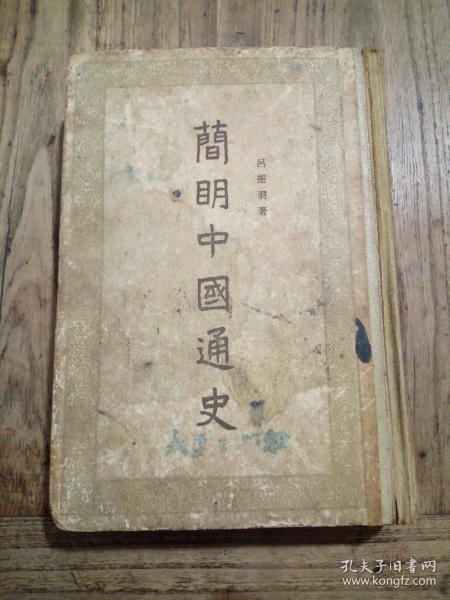 呂振羽著
簡明中國通史
孔夫子旧书网
www.kongfz.com